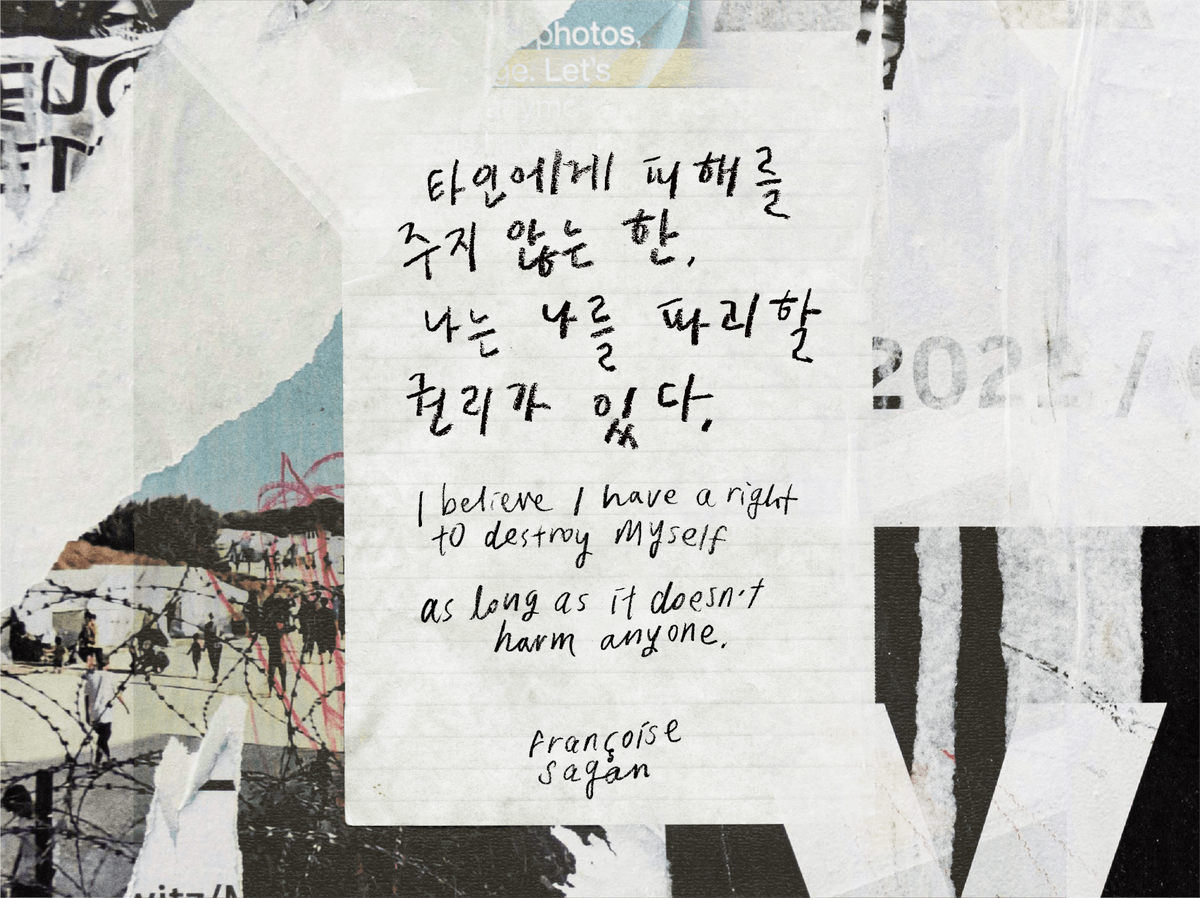 photos,
Let's
타인에게 피해를
주지 않는 한,
나는 나를 파괴할
권리가 있다.
2022 /
I believe I have a right
to destroy Myself
as long as it doesn't
harm anyone.
françoise
sagan